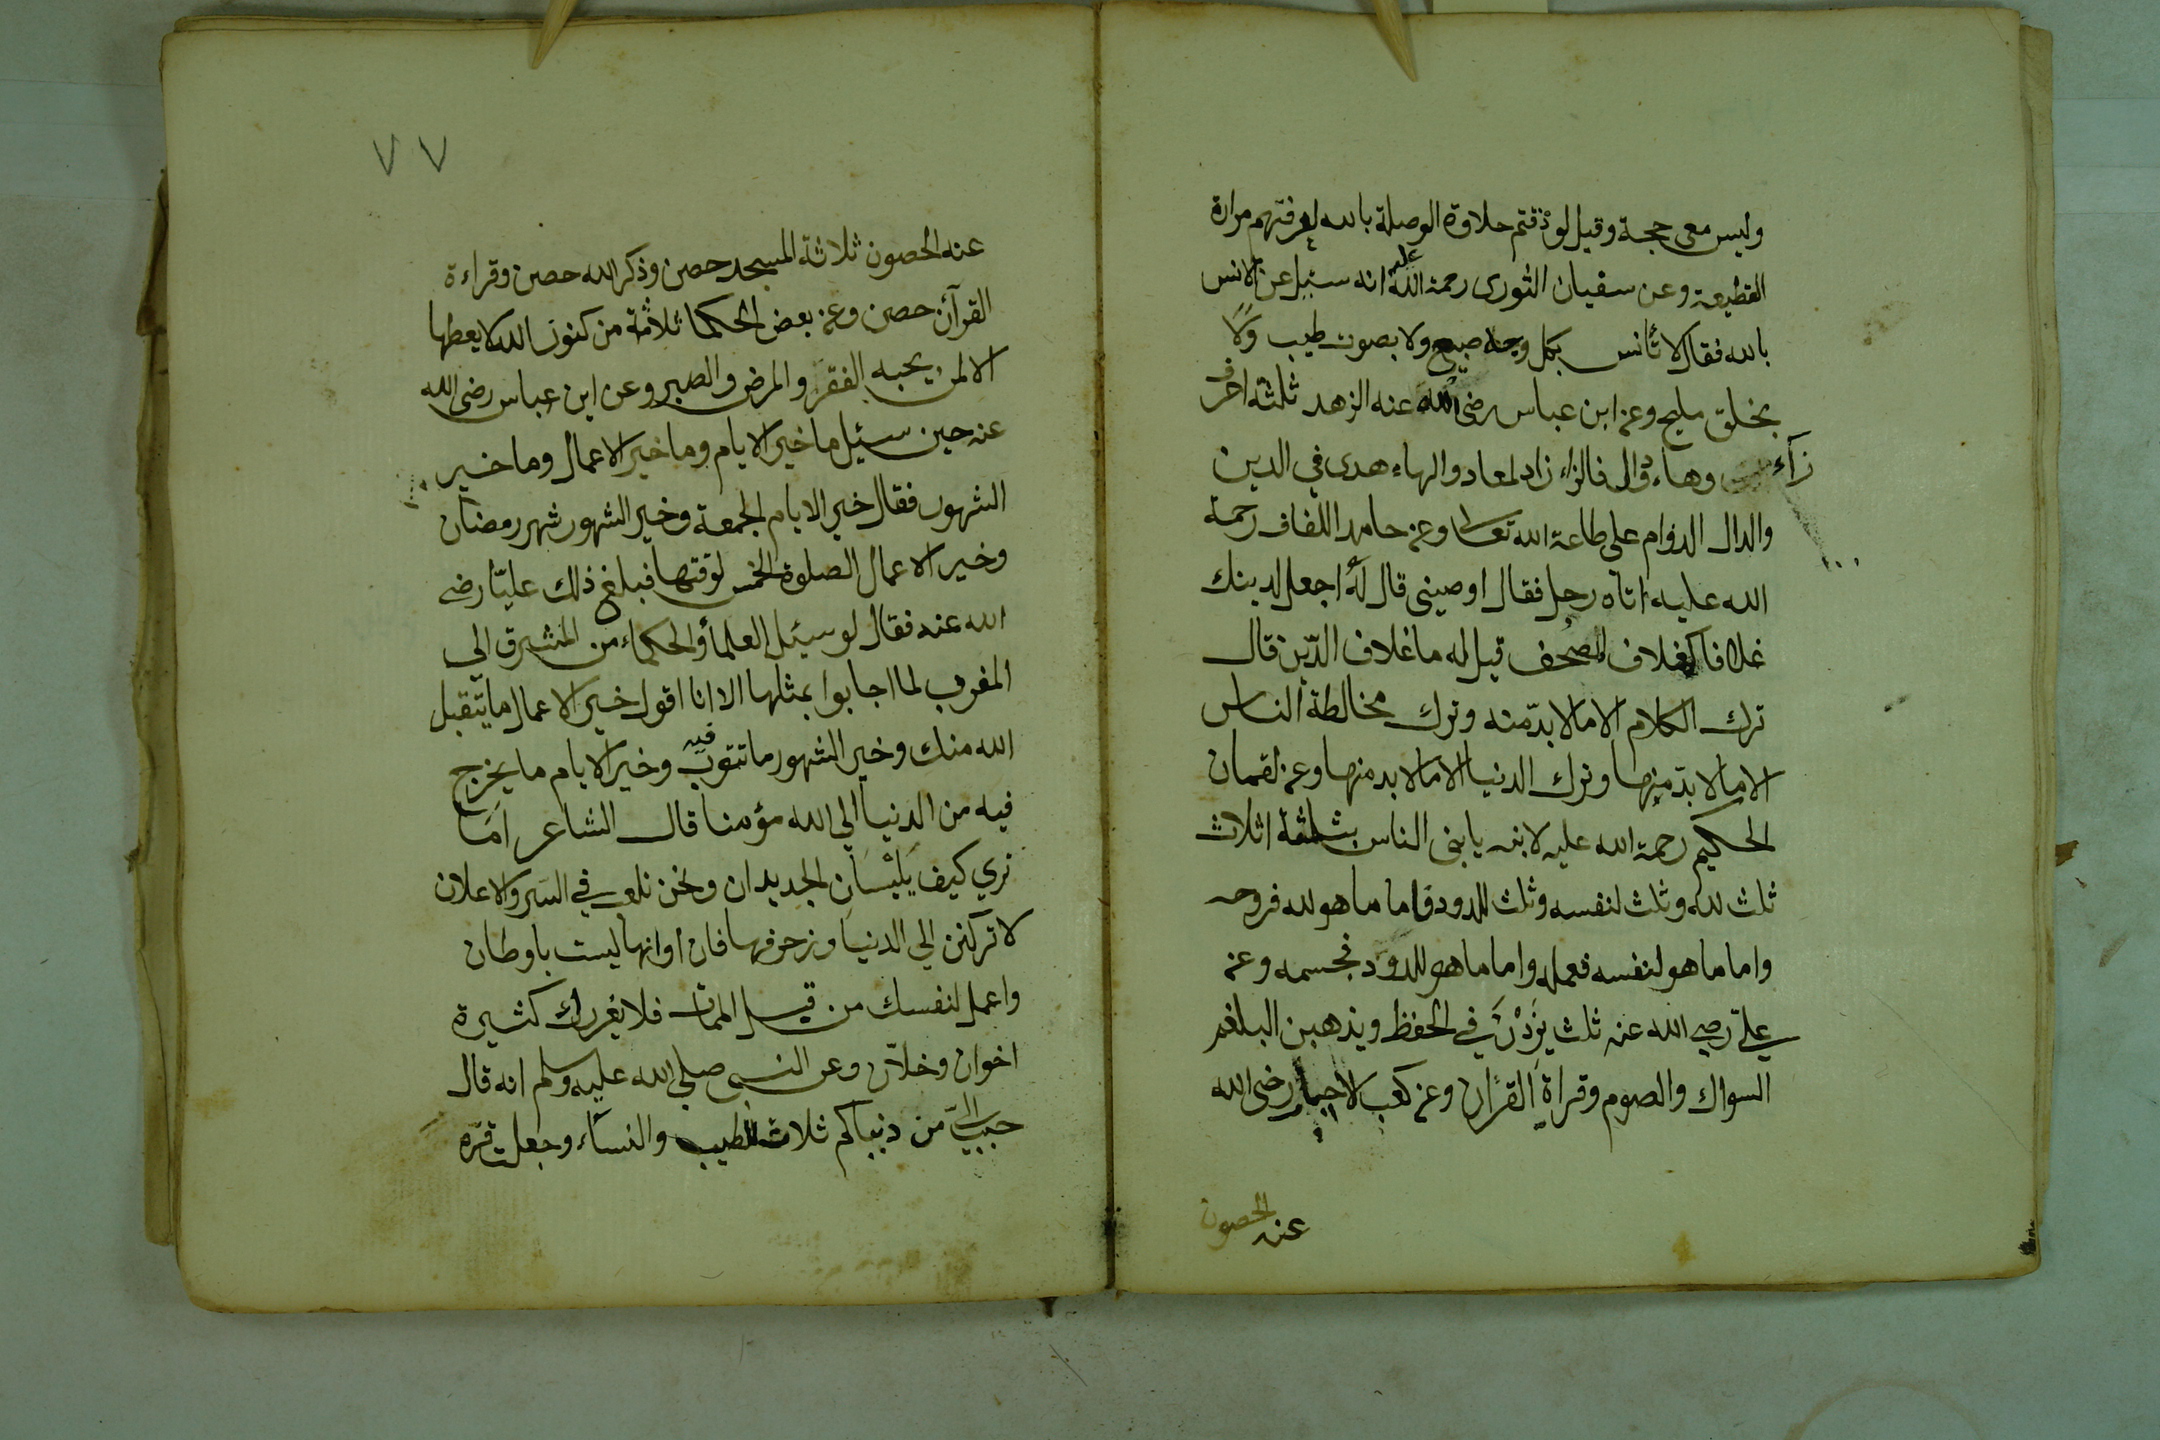 وليس معي حجة وقيل لو ذقتم حلاوة الوصلة بالله لعرفتم مرارة
القطيعة وعن سفيان الثورى رحمة الله عليه انه سئل عن الانس
بالله فقال لا تأنس بكل وجه صبيح ولا بصوت طيب ولا
بخلق مليح وعن ابن عباس رضى الله عنه الزهد ثلثة احرف
زآء وهاء ودال فالزاء زاد لمعاد والهاء هدى في الدين
والدال الدوام على طاعة الله تعالى وعن حامد اللفاف رحمة
الله عليه اتاه رجل فقال اوصيني قال له اجعل لدينك
غلافا كغلاف المصحف قيل له ما غلاف الدّين قال
ترك الكلام الا ما لا بدّ منه وترك مخالطة الناس
الا ما لا بدّ منها وترك الدنيا الا ما لا بد منها وعن لقمان
الحكيم رحمة الله عليه لابنه يا بنى الناس بثلثة اثلاث
ثلث لله وثلث لنفسه وثلث للدود فاما ما هو لله فروحه
واما ما هو لنفسه فعمله واما ما هو للدود فجسمه وعن
علىّ رضي الله عنه ثلث يزدن في الحفظ ويذهبن البلغم
السواك والصوم وقراة القرآن وعن كعب الاحبار رضى الله
عنه الحصون
٧٧
عنه الحصون ثلاثة المسجد حصن وذكر الله حصن وقراءة
القرآن حصن وعن بعض الحكما ثلاثة من كنوز الله لا يعطها
الا لمن يحبه الفقر والمرض والصبر وعن ابن عباس رضى الله
عنه حين سئيل ما خير الايام وما خير الاعمال وما خير
الشهور فقال خير الايام الجمعة وخير الشهور شهر رمضان
وخير الاعمال الصلوة الخمس لوقتها فبلغ ذلك عليّا رضى
الله عنه فقال لو سيئل العلمأ والحكماء من المشرق الي
المغرب لما اجابوا بمثلها الا انا اقول خير الاعمال ما يتقبل
الله منك وخير الشهور ما تتوب فيه وخير الايام ما يخرج
فيه من الدنيا الي الله مؤمنا قال الشاعر اما
تري كيف يلبسان الجديدان ونحن نلعب في السر والاعلان
لا تركنن الي الدنيا وزخرفها فان اوانها ليست باوطان
واعمل لنفسك من قبل الممات فلا يغررك كثيرة
اخوان وخلاّن وعن النبي صلي الله عليه وسلم انه قال
حبب اليّ من دنياكم ثلاث الطيب والنساء وجعلت قرّه